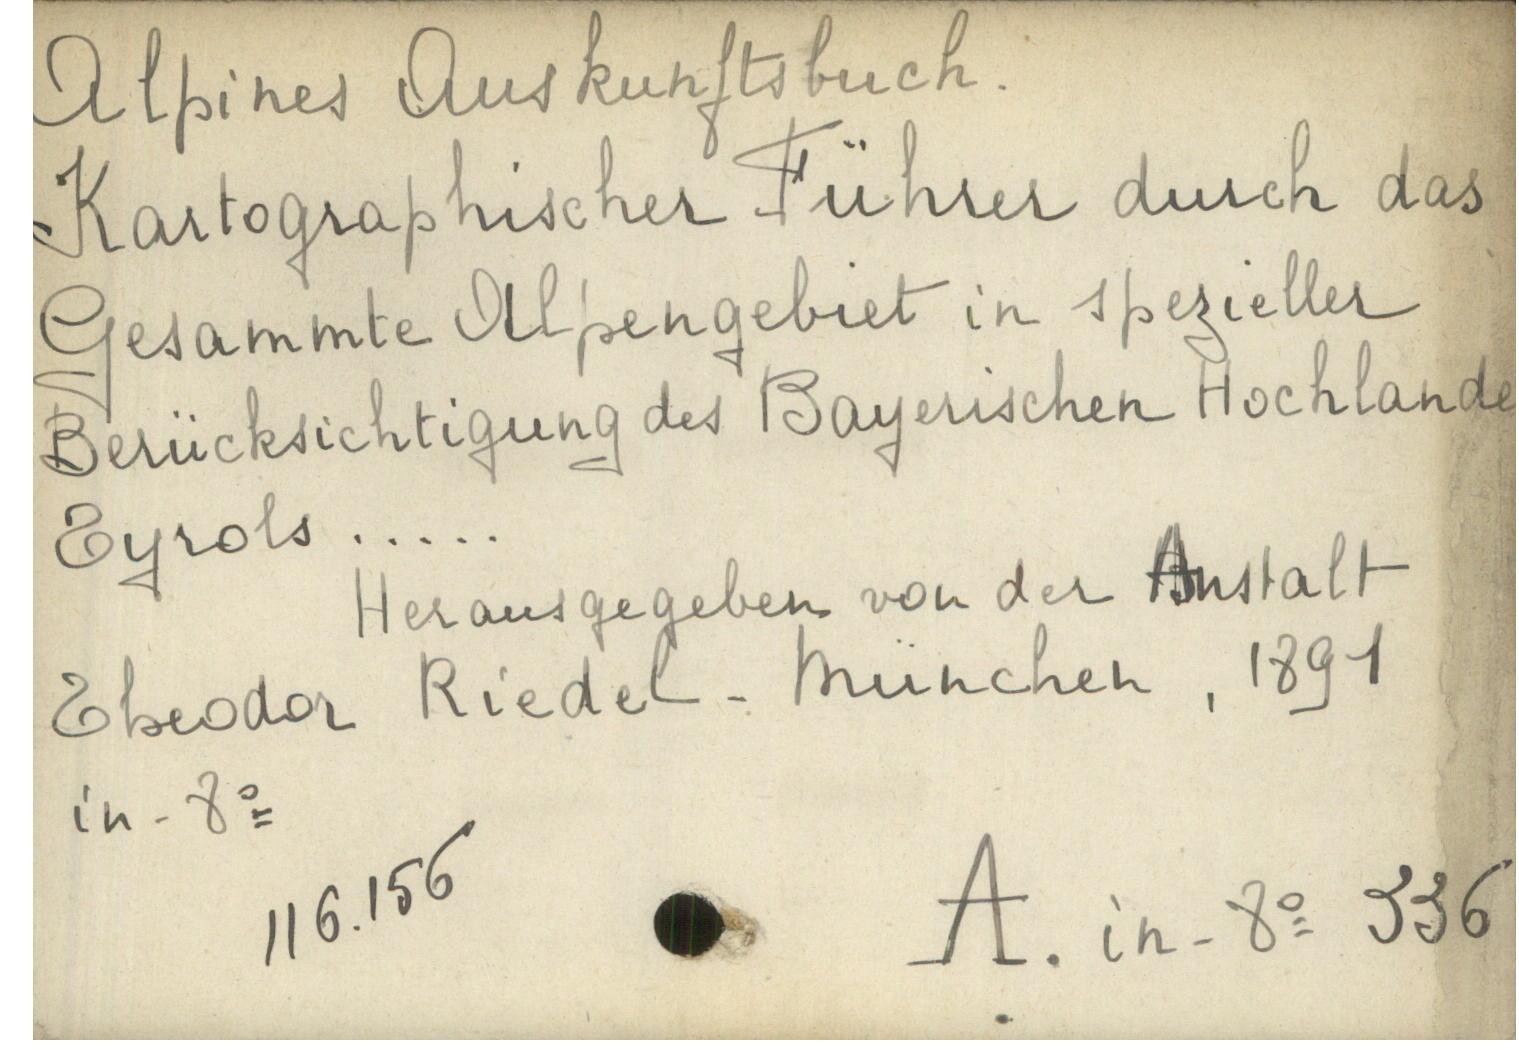 Alpines Auskunftsbuch.
Kartographischer Führer durch das
Gesammte Alpengebiet in spezieller
Berücksichtigung des Bayerischen Hochlande
Tyrols .....
Herausgegeben von der Anstalt
Theodor Riedel - München, 1891
in-8º
116.156
A. in-8º 336